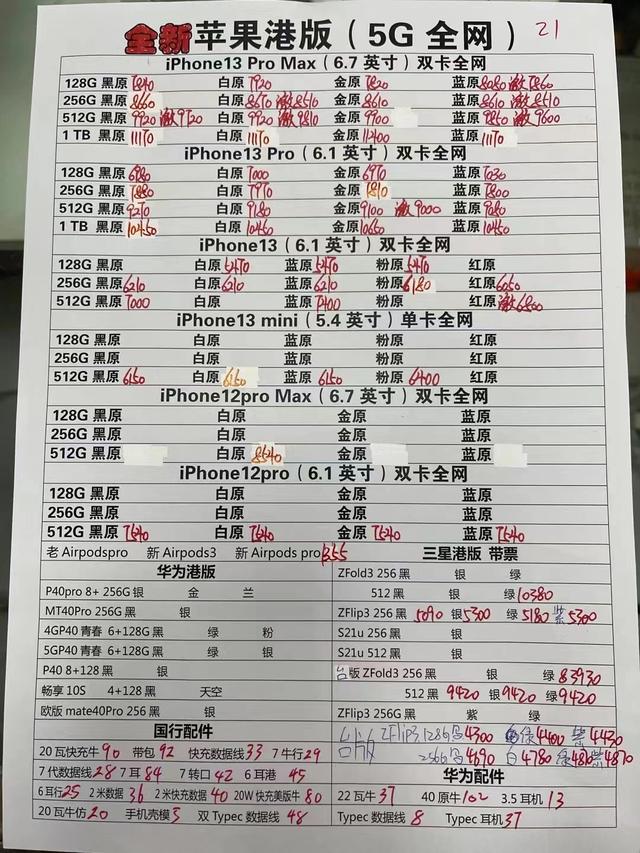 全新苹果港版（5G 全网） 21
iPhone13 Pro Max（6.7 英寸）双卡全网
128G 黑原 7840 白原 7920 金原 7820 蓝原 8080 激7860
256G 黑原 8660 白原 8670 激8510 金原 8610 蓝原 8610 激8510
512G 黑原 9920 激9720 白原 9920 激9810 金原 9900 蓝原 9850 激9600
1 TB 黑原 11170 白原 11170 金原 11400 蓝原 11170
iPhone13 Pro（6.1 英寸）双卡全网
128G 黑原 6980 白原 7000 金原 6970 蓝原 7030
256G 黑原 7880 白原 7970 金原 7810 蓝原 7800
512G 黑原 9270 白原 9180 金原 9100 激9000 蓝原 9080
1 TB 黑原 10450 白原 10450 金原 10650 蓝原 10450
iPhone13（6.1 英寸）双卡全网
128G 黑原 白原 5470 蓝原 5470 粉原 5470 红原
256G 黑原 6210 白原 6210 蓝原 6210 粉原 6180 红原 6050
512G 黑原 7000 白原 蓝原 7400 粉原 红原 激6800
iPhone13 mini（5.4 英寸）单卡全网
128G 黑原 白原 蓝原 粉原 红原
256G 黑原 白原 蓝原 粉原 红原
512G 黑原 6150 白原 6150 蓝原 6150 粉原 6400 红原
iPhone12pro Max（6.7 英寸）双卡全网
128G 黑原 白原 金原 蓝原
256G 黑原 白原 金原 蓝原
512G 黑原 白原 8540 金原 蓝原
iPhone12pro（6.1 英寸）双卡全网
128G 黑原 白原 金原 蓝原
256G 黑原 白原 金原 蓝原
512G 黑原 7540 白原 7540 金原 7540 蓝原 7540
老 Airpodspro 新 Airpods3 新 Airpods pro 1355
华为港版
P40pro 8+ 256G 银 金 兰
MT40Pro 256G 黑 银
4GP40 青春 6+128G 黑 绿 粉
5GP40 青春 6+128G 黑 绿 银
P40 8+128 黑 银
畅享 10S 4+128 黑 天空
欧版 mate40Pro 256 黑 银
国行配件
20 瓦快充牛 90 带包 92 快充数据线 33 7 牛行 29
7 代数据线 28 7 耳 84 7 转口 42 6 耳港 45
6 耳行 25 2 米数据 36 2 米快充数据 40 20W 快充美版牛 80
20 瓦牛仿 20 手机壳模 5 双 Typec 数据线 48
三星港版 带票
ZFold3 256 黑 银 绿
512 黑 银 绿 10380
ZFlip3 256 黑 5090 银 5300 绿 5180 紫 5300
S21u 256 黑 银
S21u 512 黑 银
台版 ZFold3 256 黑 银 绿 83930
512 黑 9420 银 9420 绿 9420
ZFlip3 256G 黑 紫 绿
台版 ZFlip3 128G 4300 绿 4400 紫 4430
256G 4690 白 4780 绿 4870 紫 4870
华为配件
22 瓦牛 37 40 原牛 102 3.5 耳机 13
Typec 数据线 8 Typec 耳机 37